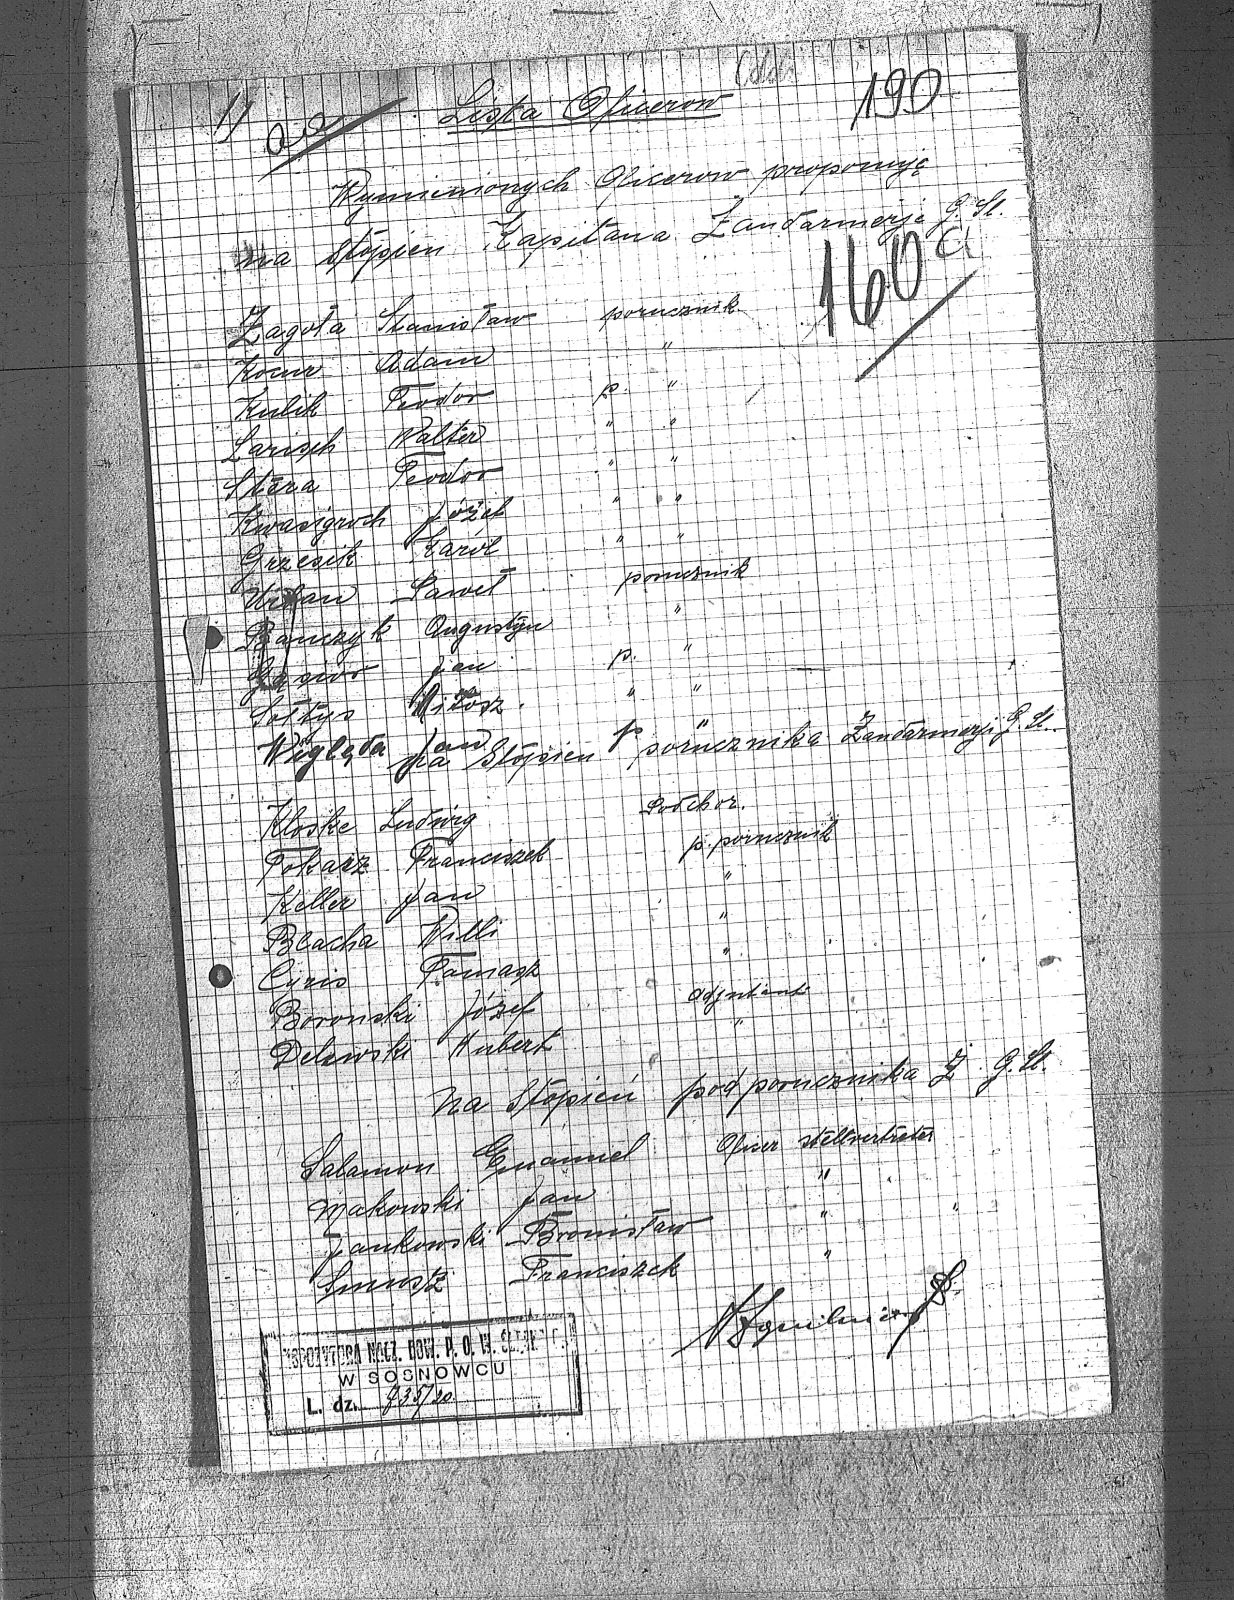 1)
190
Lista Oficerow
Wymienionych Oficerow proponuję
na stopien Kapitana Żandarmerji G. Sl.
160 a
Zagola Stanisław porucznik
Kocur Adam "
Kulik Teodor p. "
Larisch Walter " "
Stera Teodor " "
Kwasigroch Józef " "
Grzesik Karol " "
Paweł porucznik
Banczyk Augustyn "
Gąsior Jan p. "
Sołtys " "
Jan p "
na stopien porucznika Żandarmerji G. Sl.
Kloske Ludwig Podchor.
Tokarz Franciszek p. porucznik
Keller Jan "
Blacha Willi "
Cyris Tomasz "
Boronski Józef adjutant
Delawski Hubert "
na stopień podporucznika Ż. G. Sl.
Salamon Emanuel Oficer stellvertreter
Makowski Jan "
Jankowski Bronisław " "
Smusz Franciszek "
EKSPOZYTURA NACZ. DOW. P. O. W. 
W SOSNOWCU
L. dz. 735/20